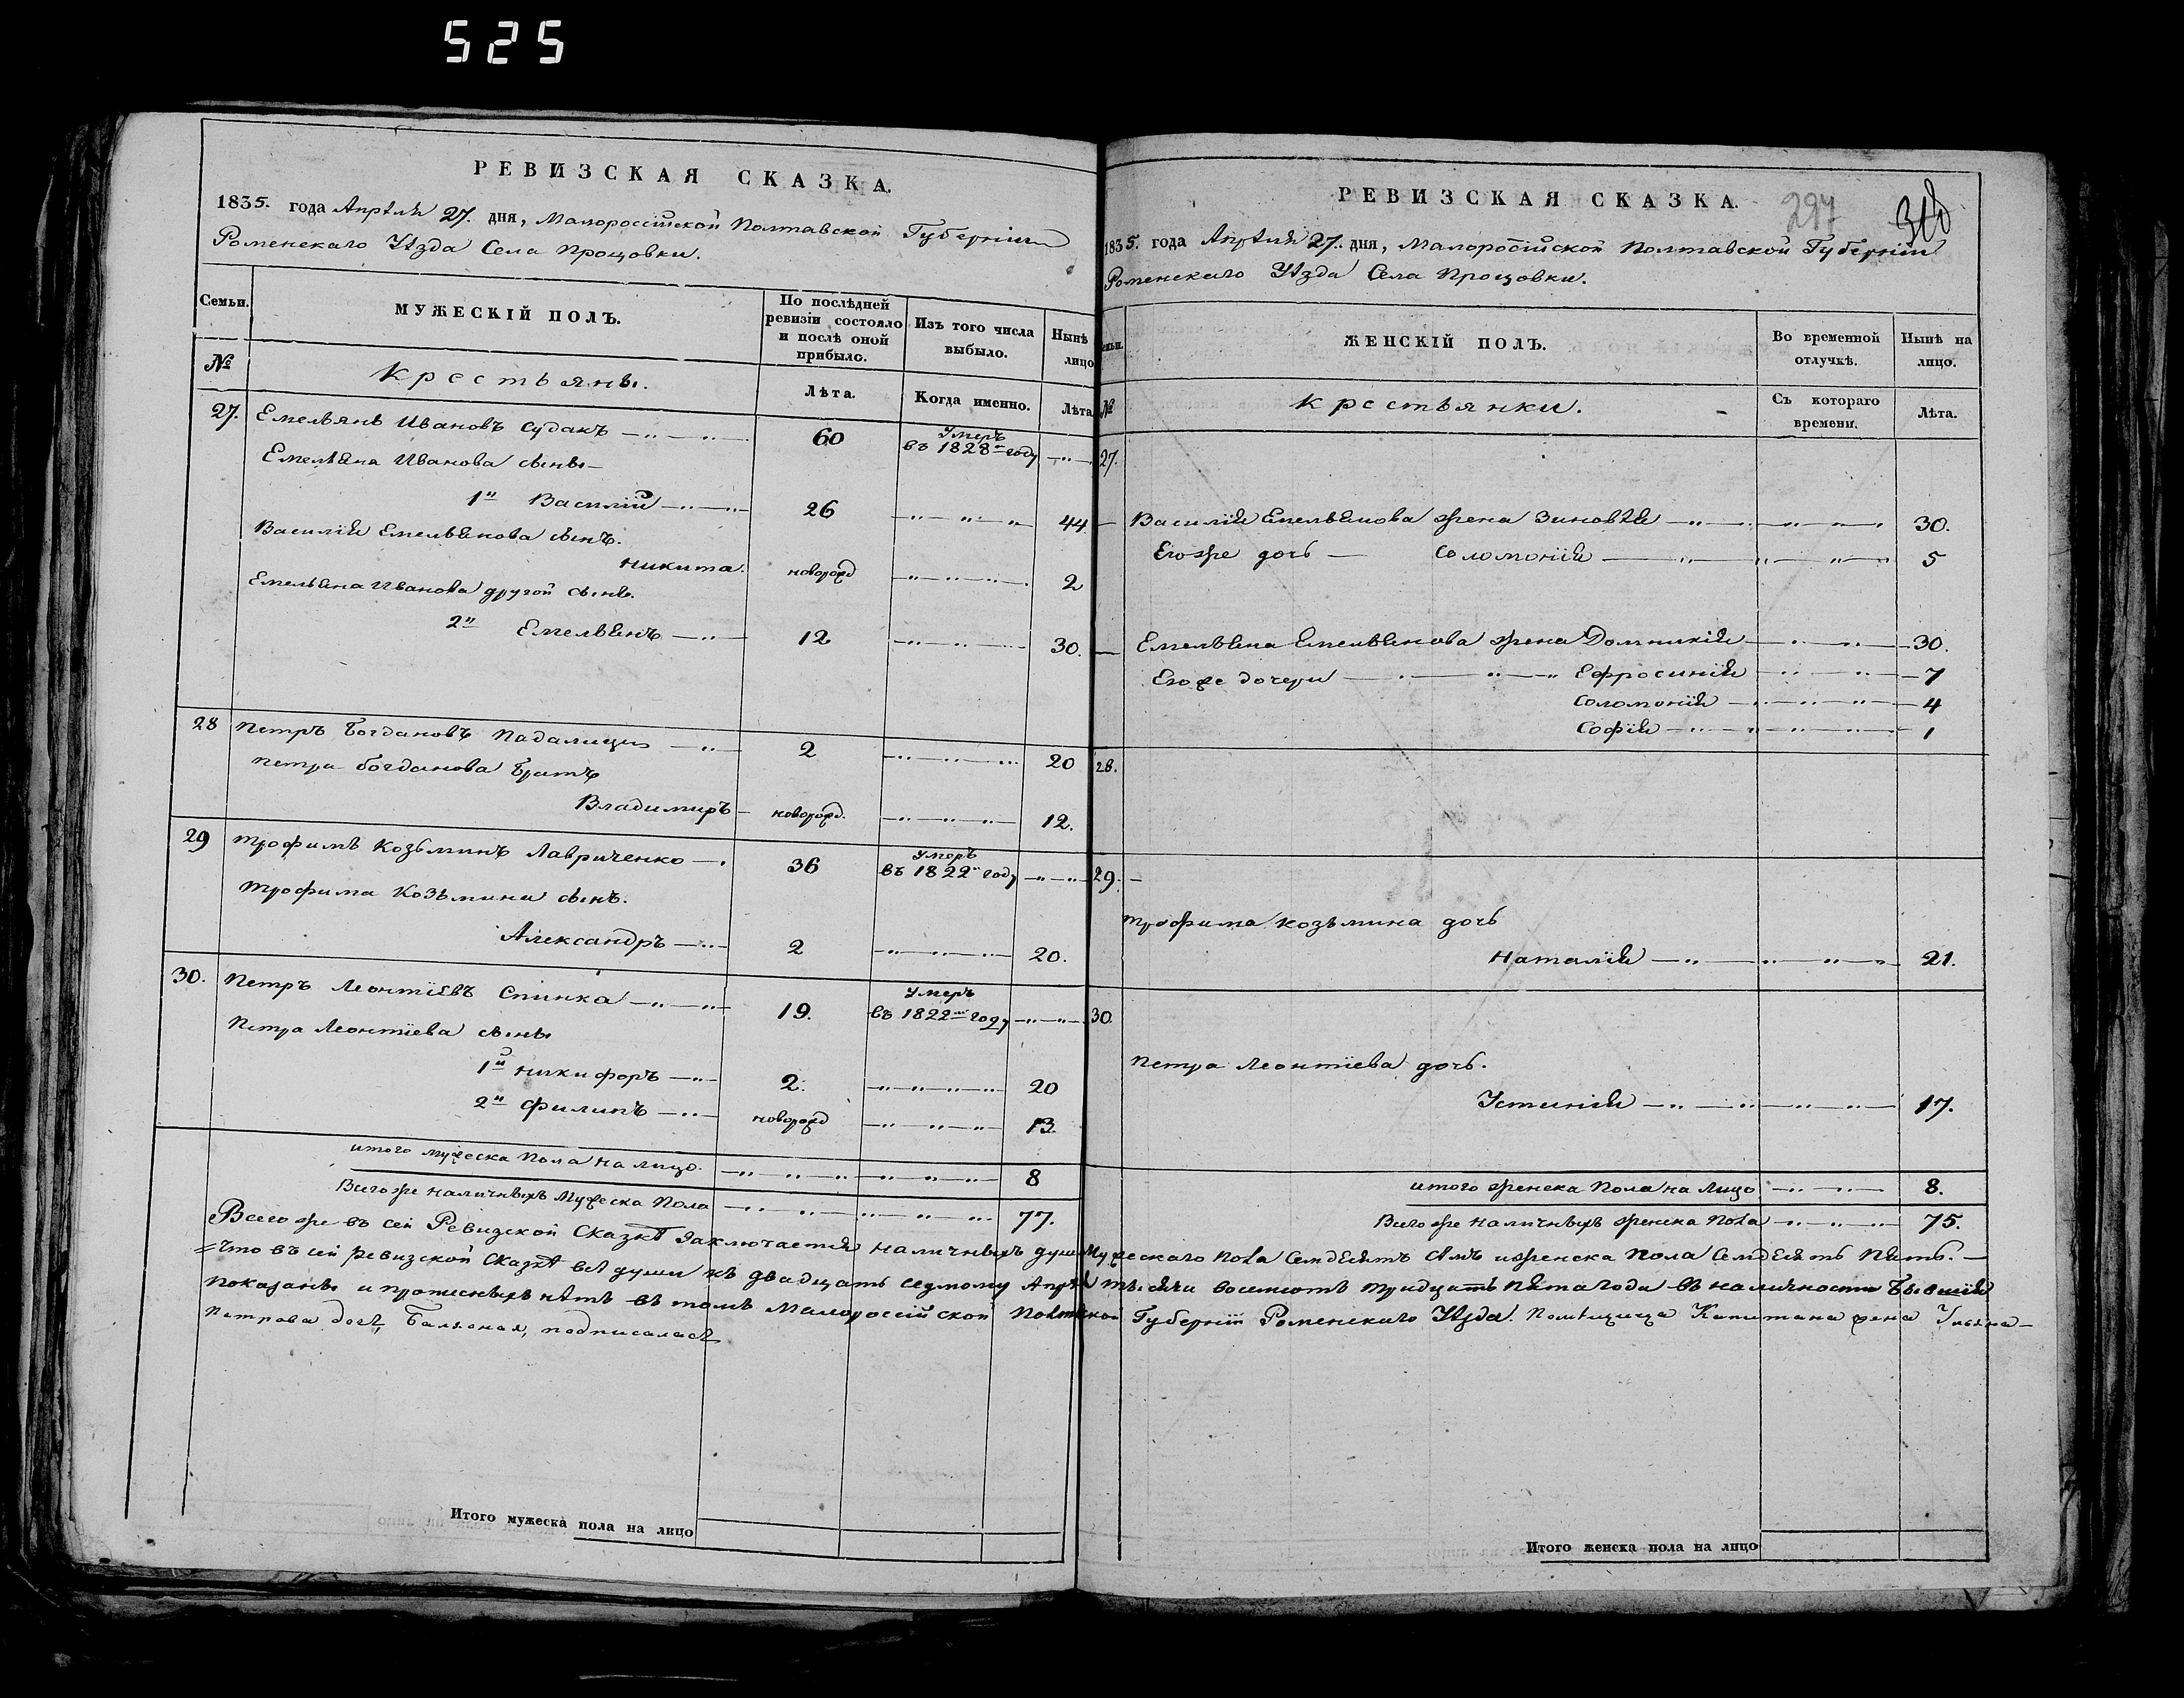 525
РЕВИЗСКАЯ СКАЗКА.
1835. года Апрѣля 27. дня, Малороссійской Полтавской Губерніи
Роменскаго Уѣзда Села Прощовки.
Семьи.
МУЖЕСКІЙ ПОЛЪ.
По послѣдней ревизіи состояло и послѣ оной прибыло.
Изъ того числа выбыло.
Нынѣ лицо
№
Крестьянѣ.
Лѣта.
Когда именно.
Лѣта
27. Емельянъ Ивановъ Судакъ 60 Умеръ въ 1828 году
Емельяна Иванова сынъ
1й Василій 26 44
Василія Емельянова сынъ.
Никита. новорожд 2
Емельяна Иванова другой сынъ.
2й Емельянъ 12 30.
28 Петръ Богдановъ Падалица 2 20
Петра Богданова братъ
Владимиръ новорожд. 12.
29 Трофимъ Козьминъ Лавриченко 36 Умеръ въ 1822 году
Трофима Козьмина сынъ.
Александръ 2 20.
30. Петръ Леонтіевъ Спинка 19. Умеръ въ 1822 году
Петра Леонтіева сынъ
1й Никифоръ 2. 20
2й Филипъ новорожд 13.
итого мужеска пола на лицо. 8
Всего же наличныхъ мужеска пола 77.
РЕВИЗСКАЯ СКАЗКА. 297
1835. года Апрѣля 27. дня, Малороссійской Полтавской Губерніи
Роменскаго Уѣзда Села Прощовки.
ЖЕНСКІЙ ПОЛЪ.
Во временной отлучкѣ.
Нынѣ на лицо.
№
Крестьянки.
Съ котораго времени.
Лѣта.
27.
Василія Емельянова жена Зиновѣя 30.
Его же дочь Соломонія 5
Емельяна Емельянова жена Домникія 30.
Его же дочери Ефросинія 7
Соломонія 4
Софія 1
28.
29.
Трофима Козьмина дочь
Наталія 21.
30.
Петра Леонтіева дочь.
Устинія 17.
итого женска пола на лицо 8.
Всего же наличныхъ женска пола 75.
Всего же въ сей Ревизской Сказкѣ заключается наличныхъ душъ Мужескаго пола Семдесятъ Семъ и женска пола Семдесятъ пять.
Что въ сей ревизской Сказкѣ всѣ души къ двадцать седмому Апрѣля тысячи восемсотъ тридцать пята года въ наличности бывшія
показаны и прописныхъ нѣтъ въ томъ Малороссійской Полтавской Губерніи Роменскаго Уѣзда. Помѣщица Капитана жена Ульяна
Петрова дочь, подписалась
Итого мужеска пола на лицо
Итого женска пола на лицо